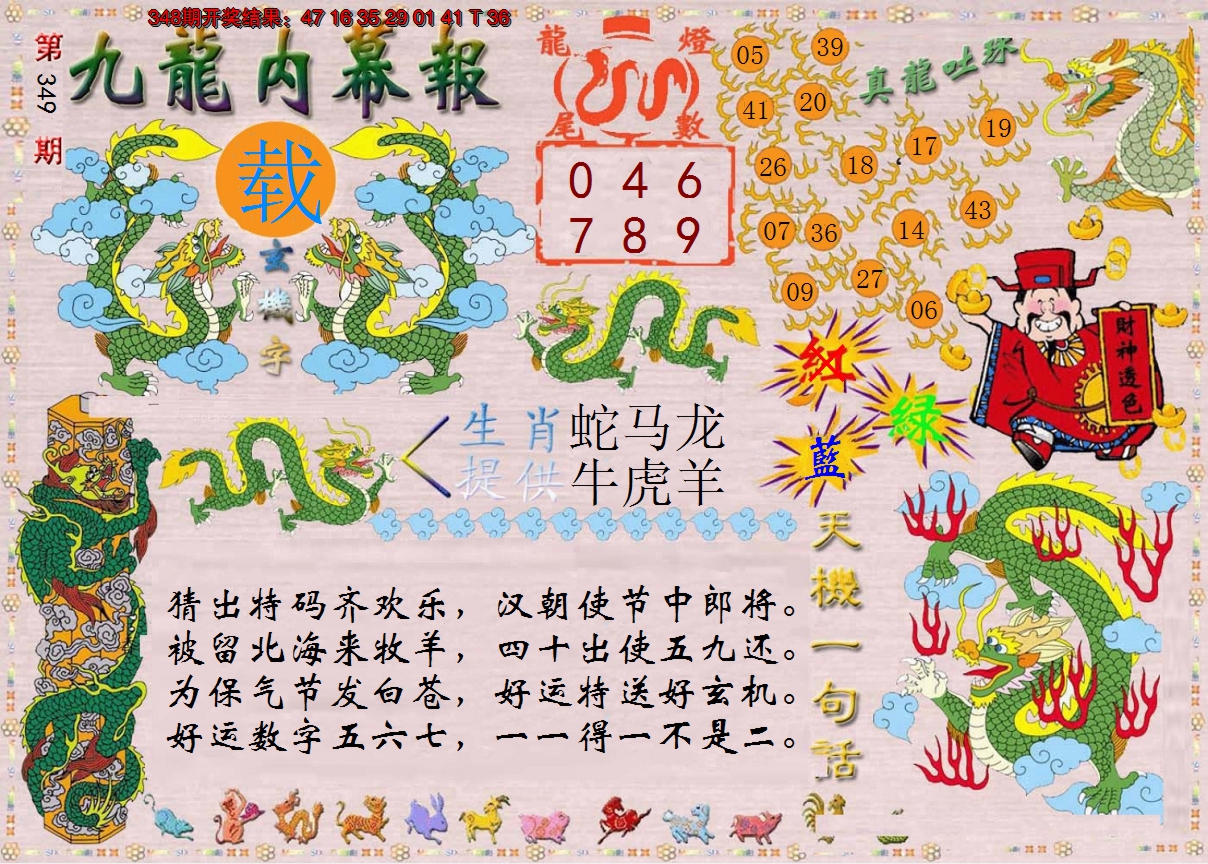 348期开奖结果：47 16 35 29 01 41 T 36
第349期
九龍内幕報
载
玄機字
龍燈
尾數
0 4 6
7 8 9
真龍吐珠
05 39
41 20
26 18 17 19
07 36 14 43
09 27 06
財神透色
紅
綠
藍
生肖 蛇马龙
提供 牛虎羊
天機一句話
猜出特码齐欢乐，汉朝使节中郎将。
被留北海来牧羊，四十出使五九还。
为保气节发白苍，好运特送好玄机。
好运数字五六七，一一得一不是二。